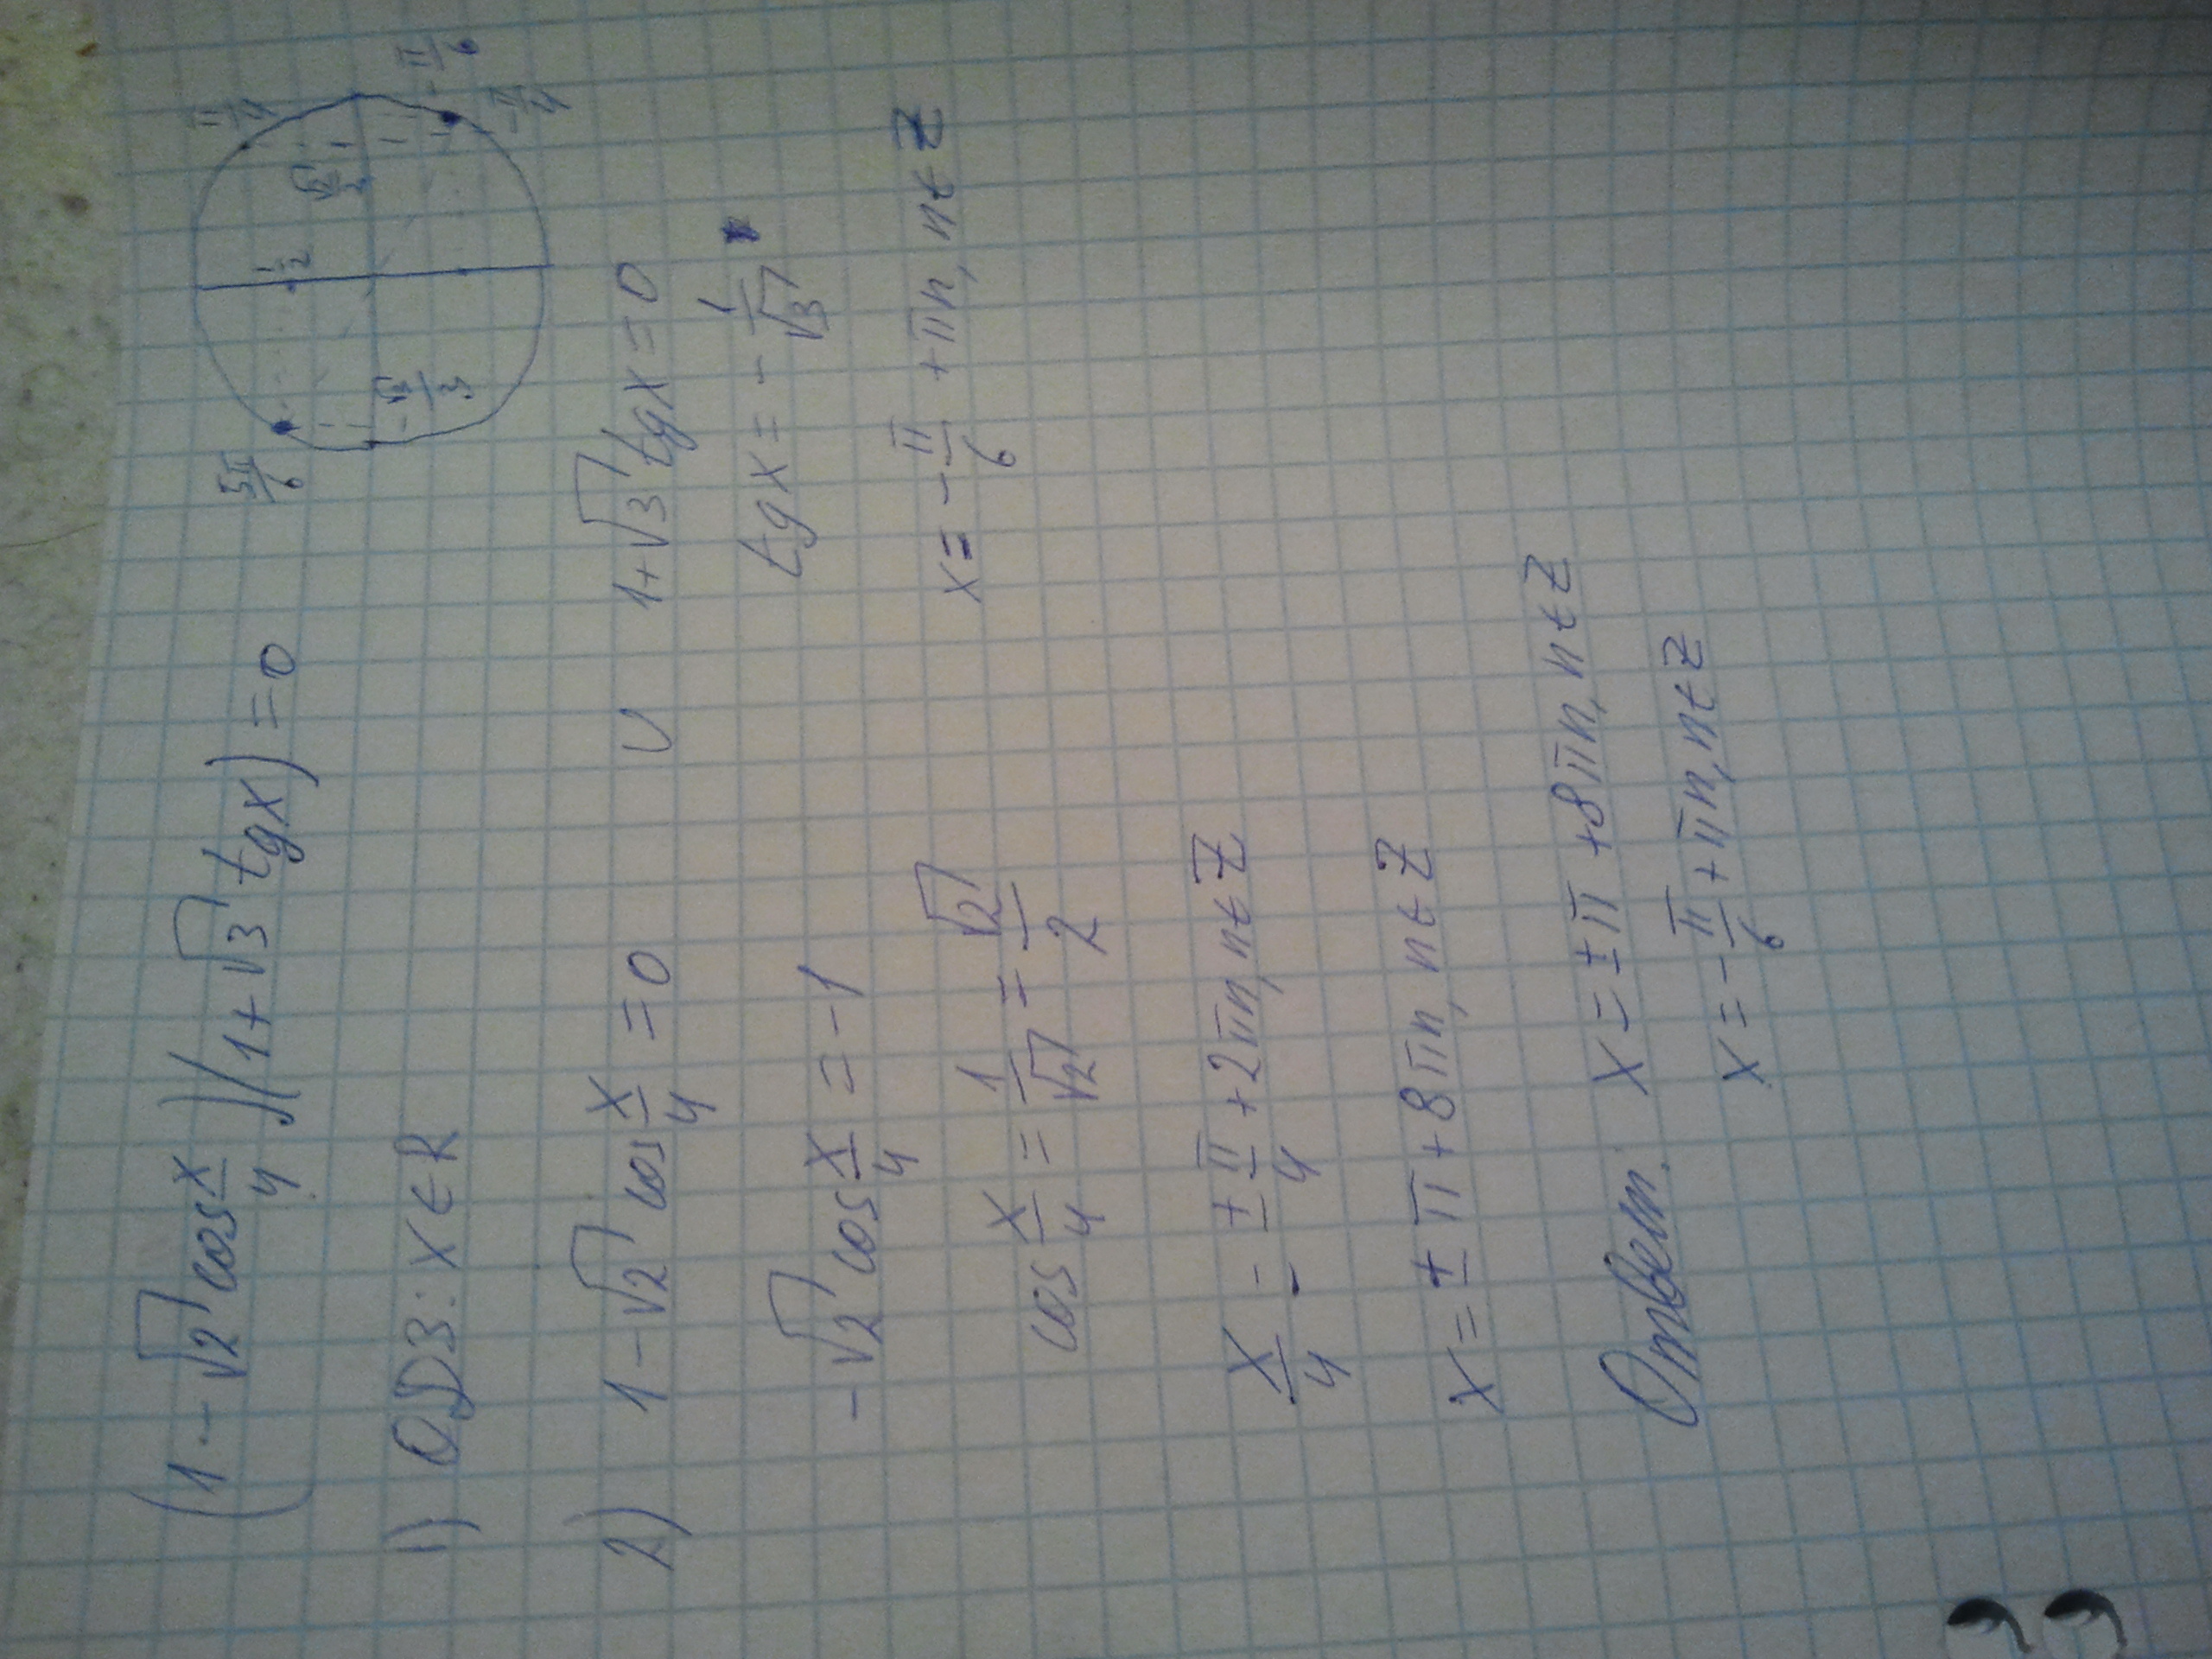 (1 - √2 cos x/4)(1 + √3 tg x) = 0
1) ОДЗ: x ∈ R
2) 1 - √2 cos x/4 = 0 ∪ 1 + √3 tg x = 0
-√2 cos x/4 = -1
tg x = - 1/√3
cos x/4 = 1/√2 = √2/2
x = - π/6 + πn, n ∈ Z
x/4 = ± π/4 + 2πn, n ∈ Z
x = ± π + 8πn, n ∈ Z
Ответ: x = ± π + 8πn, n ∈ Z
x = - π/6 + πn, n ∈ Z
5π/6
1/2
√2/2
π/4
- π/6
- π/4